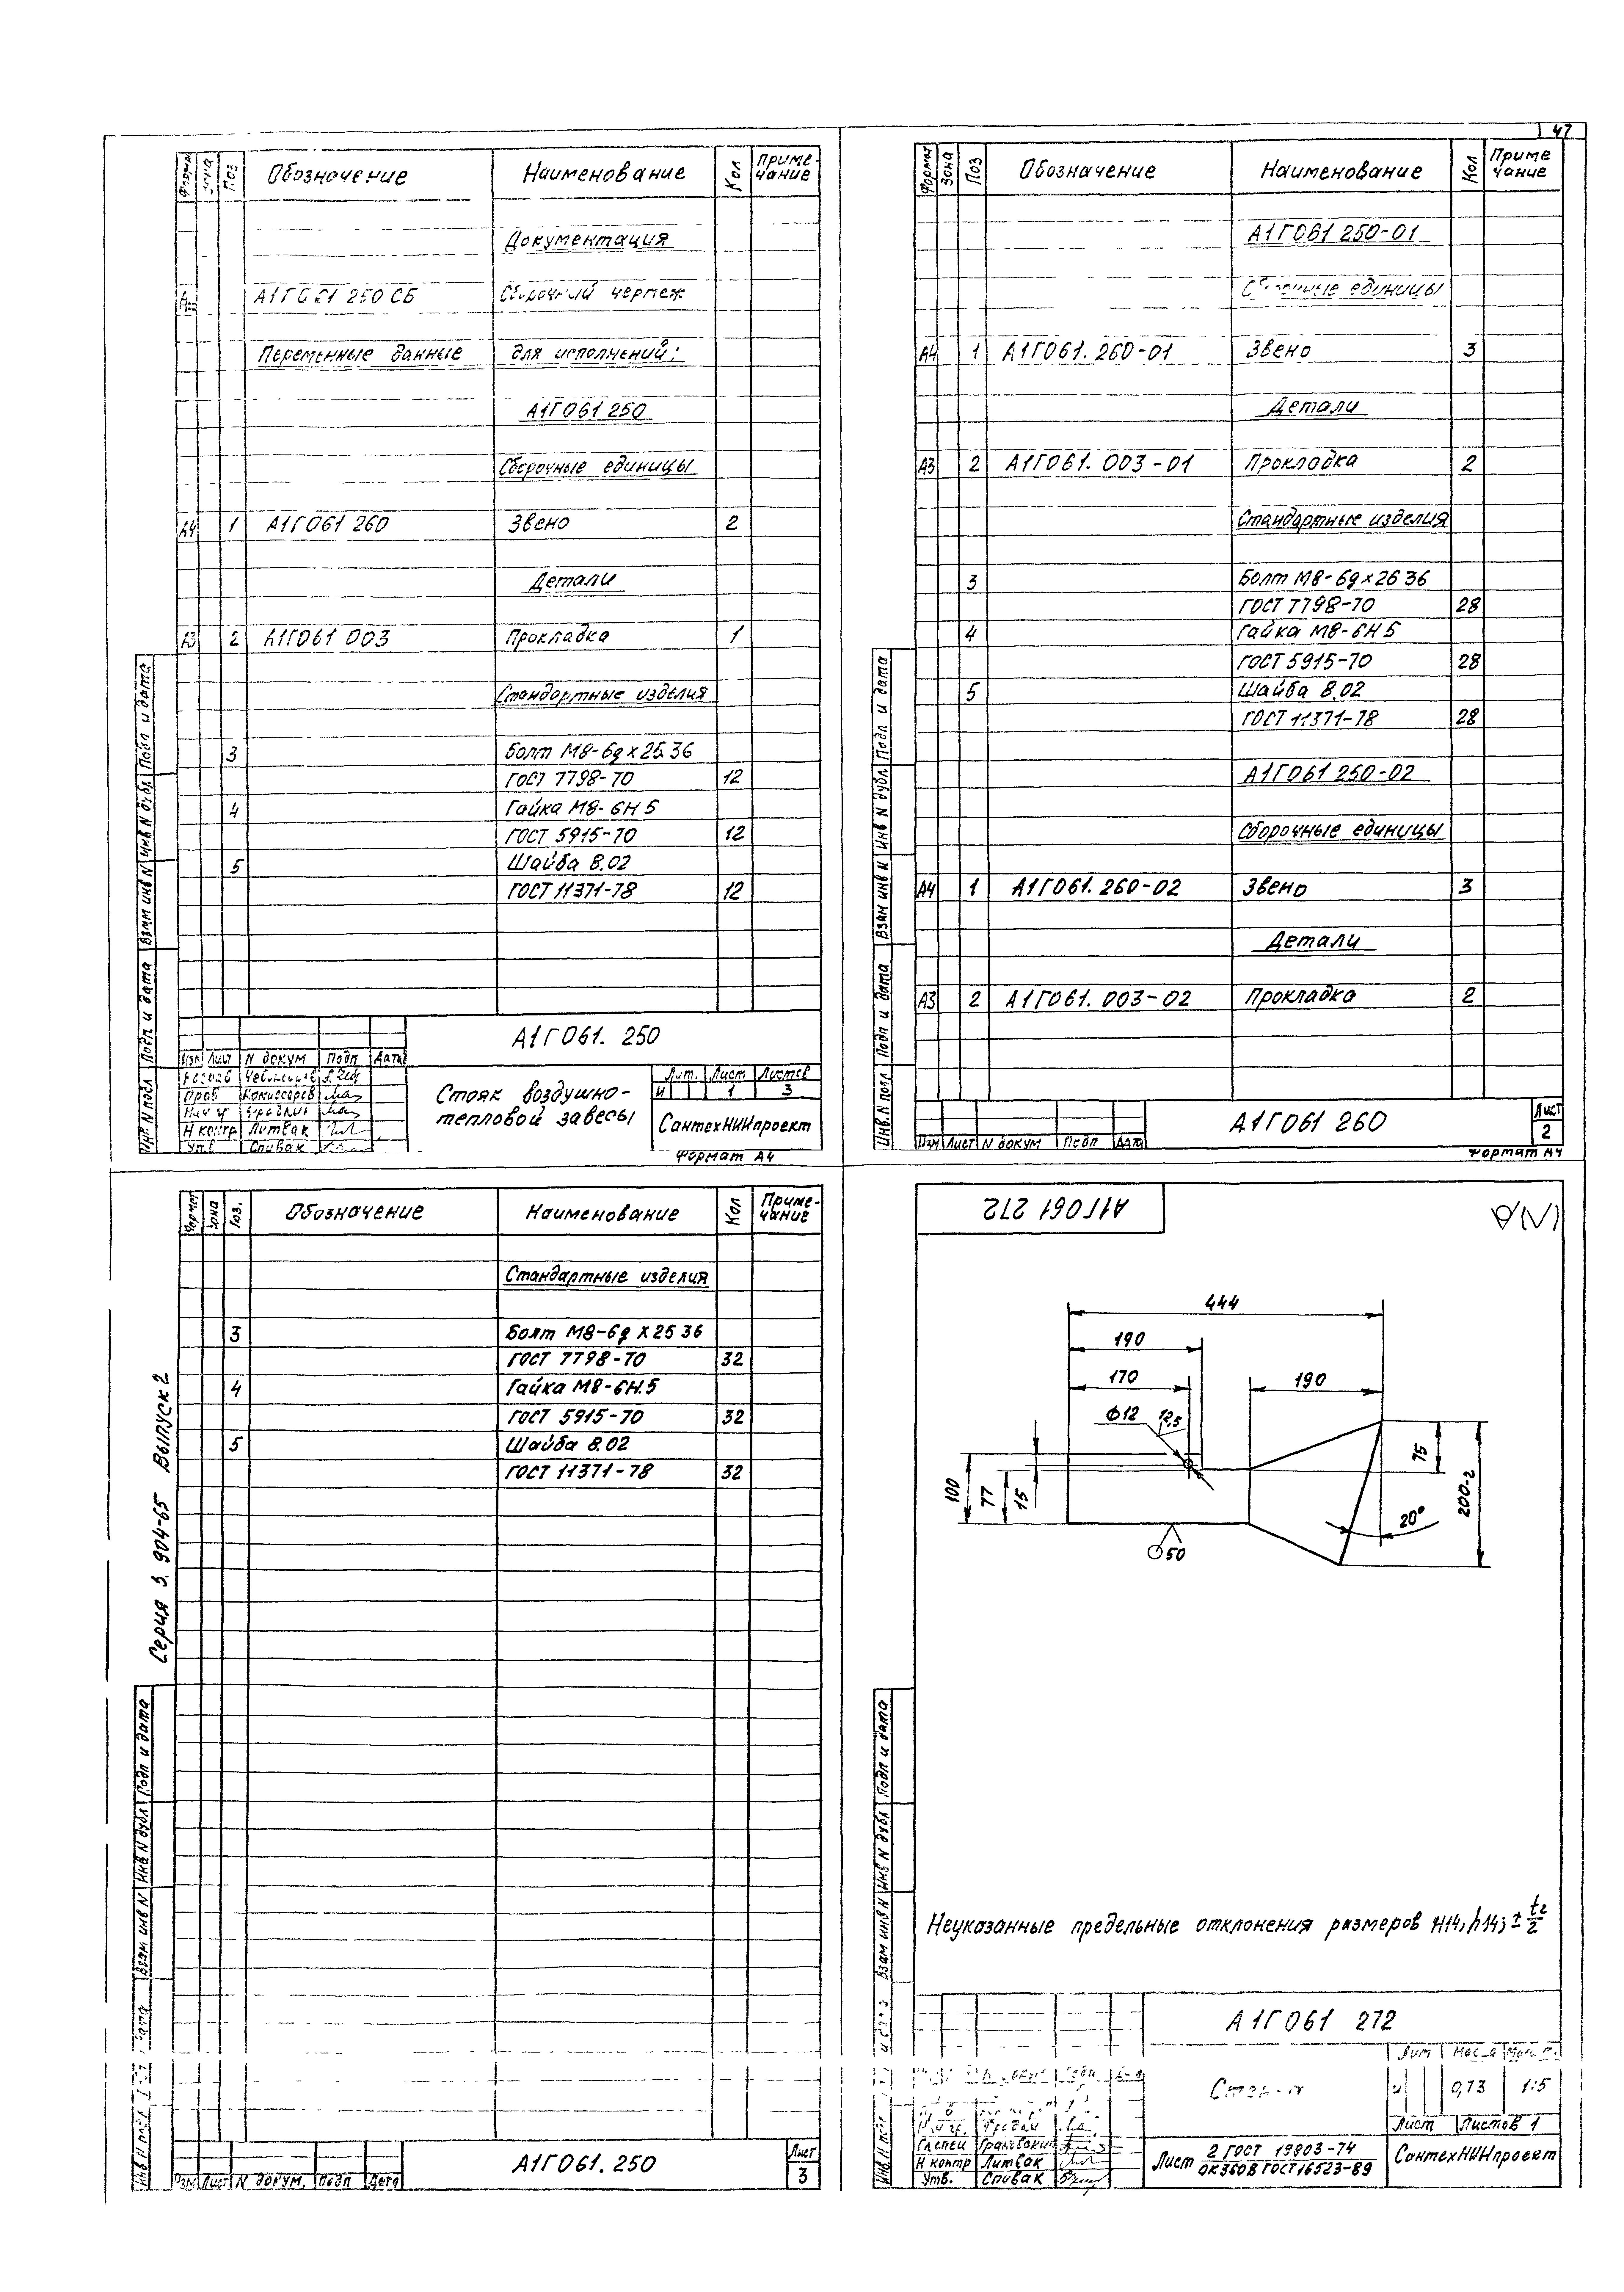 47
Формат Зона Поз Обозначение Наименование Кол Приме-
чание
Документация
А1Г061 250 СБ Сборочный чертеж
Переменные данные для исполнений:
А1Г061 250
Сборочные единицы
А4 1 А1Г061 260 Звено 2
Детали
А3 2 А1Г061 003 Прокладка 1
Стандартные изделия
3 Болт М8-6gх25.36
ГОСТ 7798-70 12
4 Гайка М8-6Н 5
ГОСТ 5915-70 12
5 Шайба 8.02
ГОСТ 11371-78 12
Инв N подл Подп и дата Взам инв N Инв N дубл Подп и дата
А1Г061. 250
Изм Лист N докум Подп Дата
Пров Комиссаров
Н контр Литвак
Утв Спивак
Стояк воздушно-
тепловой завесы
Лит. Лист Листов
И 1 3
СантехНИИпроект
Формат А4
Формат Зона Поз Обозначение Наименование Кол Приме
чание
А1Г061 250-01
Сборочные единицы
А4 1 А1Г061. 260-01 Звено 3
Детали
А3 2 А1Г061. 003-01 Прокладка 2
Стандартные изделия
3 Болт М8-6gх26 36
ГОСТ 7798-70 28
4 Гайка М8-6Н 5
ГОСТ 5915-70 28
5 Шайба 8.02
ГОСТ 11371-78 28
А1Г061 250-02
Сборочные единицы
А4 1 А1Г061. 260-02 Звено 3
Детали
А3 2 А1Г061. 003-02 Прокладка 2
Инв. N подл Подп и дата Взам инв N Инв N дубл Подп и дата
Изм Лист N докум Подп Дата
А1Г061 260
Лист
2
Формат А4
Серия 5. 904-65 Выпуск 2
Формат Зона Поз. Обозначение Наименование Кол Приме-
чание
Стандартные изделия
3 Болт М8-6g х25 36
ГОСТ 7798-70 32
4 Гайка М8-6Н.5
ГОСТ 5915-70 32
5 Шайба 8.02
ГОСТ 11371-78 32
Инв N подл Взам инв N Инв N дубл Подп и дата
Изм Лист N докум. Подп Дата
А1Г061. 250
Лист
3
А1Г061 272
(√)
444
190
170
190
ф12
12,5
100
77
15
75
200-2
20°
50
Неуказанные предельные отклонения размеров Н14, h14; ± t2/2
Взам инв N Инв N дубл Подп и дата
А1Г061 272
Лит Масса Масшт.
и 0,73 1:5
Лист Листов 1
Гл спец Грановский
Н контр Литвак
Утв. Спивак
Лист 2 ГОСТ 19903-74
ОК360В ГОСТ 16523-89
СантехНИИпроект